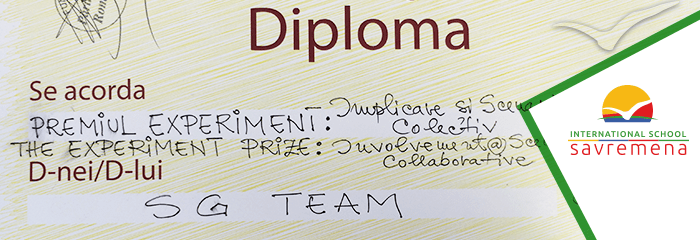 Diploma
Se acorda
PREMIUL EXPERIMENT: Implicare si
Colectiv
THE EXPERIMENT PRIZE: Involvement@
Collaborative
D-nei/D-lui
SG TEAM
INTERNATIONAL SCHOOL
savremena